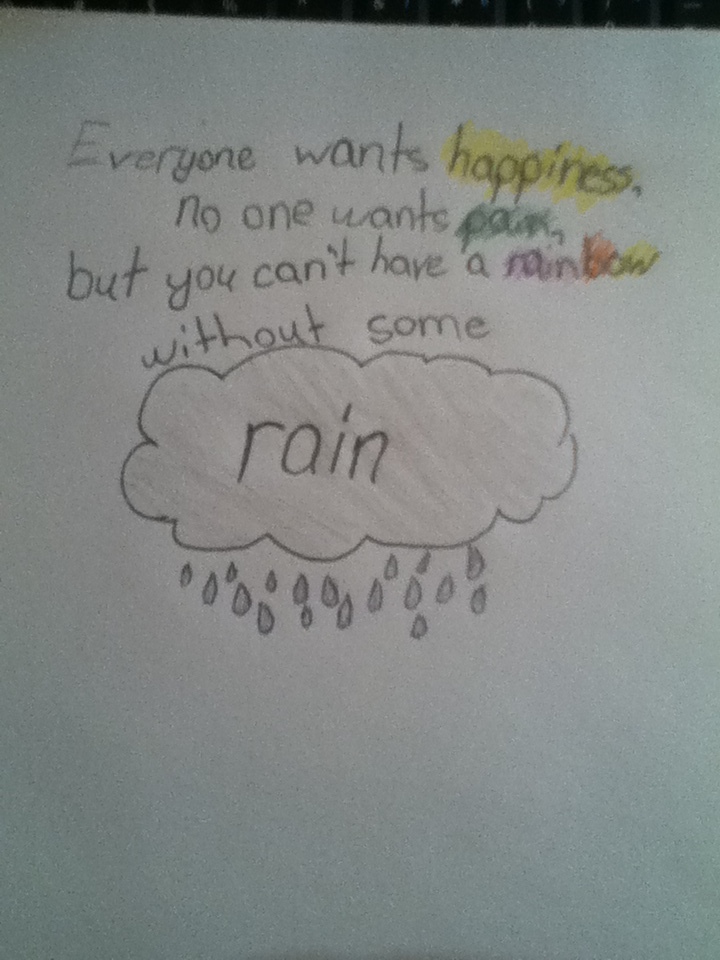 Everyone wants happiness,
no one wants pain,
but you can't have a rainbow
without some
rain